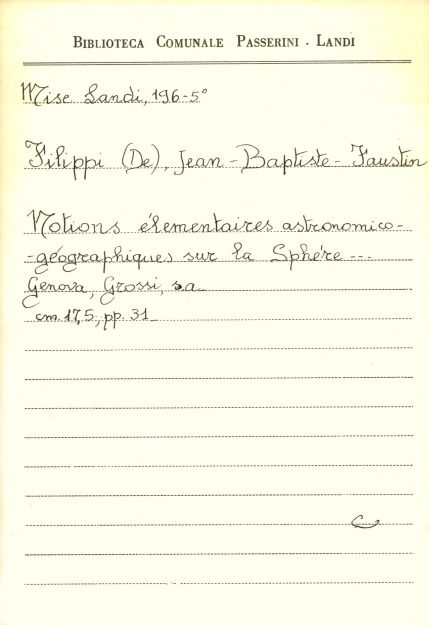 BIBLIOTECA COMUNALE PASSERINI - LANDI
Misc Landi, 196-5°
Filippi (De), Jean-Baptiste-Faustin
Notions élementaires astronomico-
-géographiques sur la Sphére ---
Genova, Grossi, s.a.
cm. 17,5, pp. 31